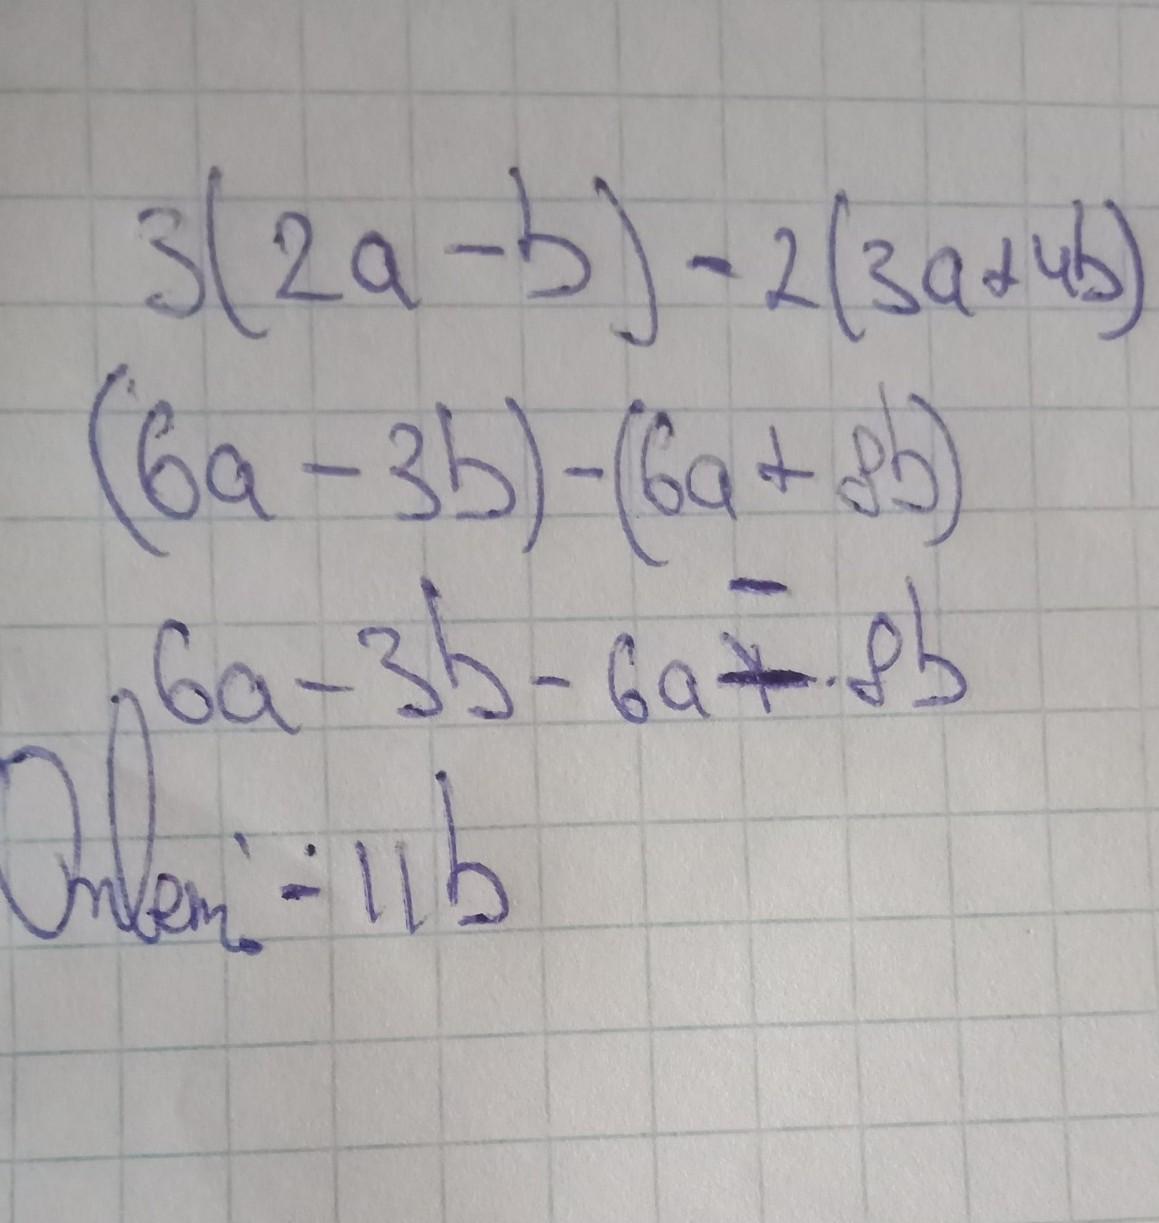 3(2a-b)-2(3a+4b)
(6a-3b)-(6a+8b)
6a-3b-6a-8b
Ответ: -11b